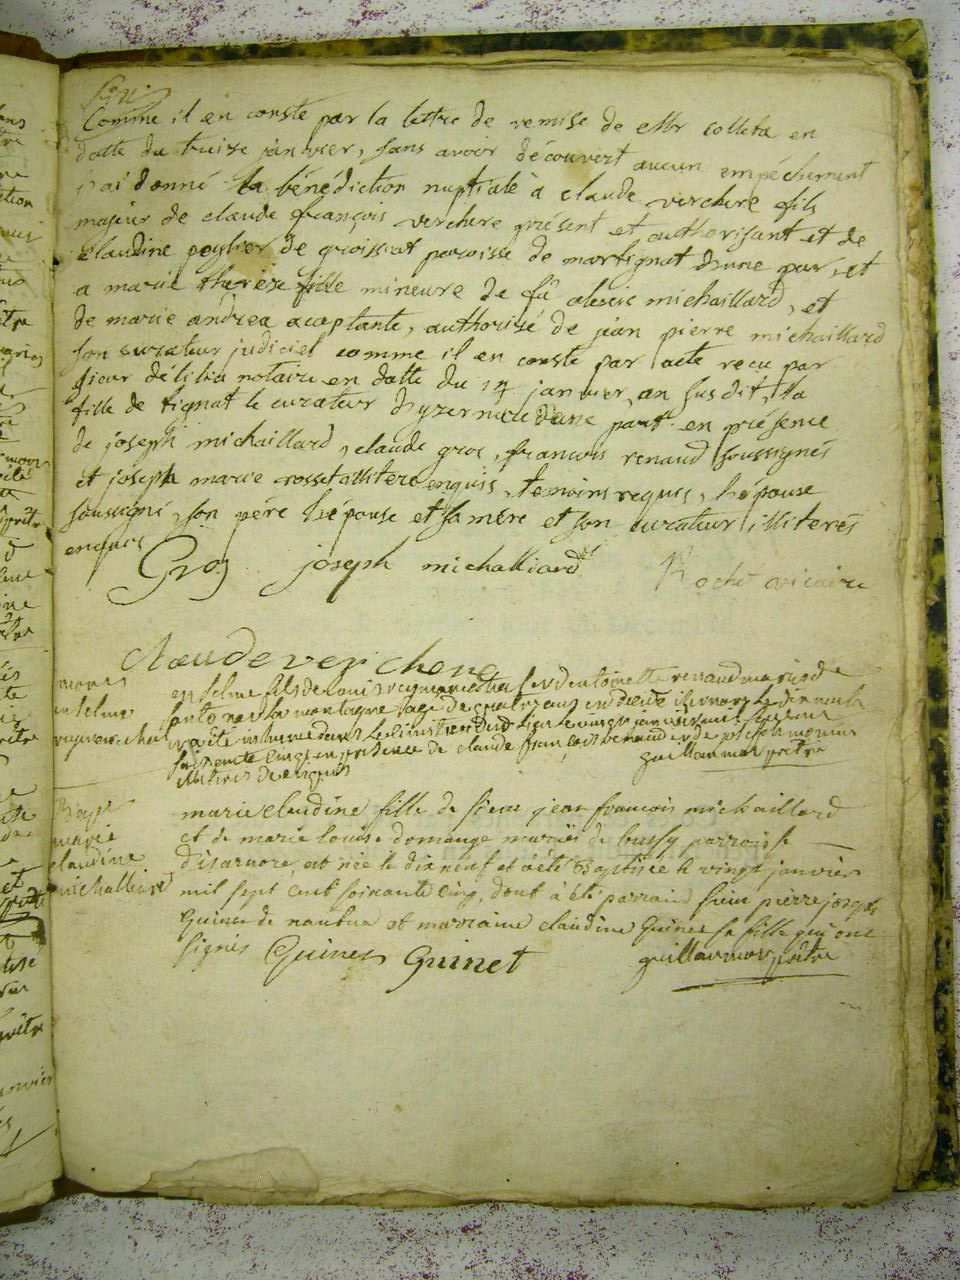 Comme il en conste par la lettre de remise de Mr colleta en
datte du treize janvier, sans avoir découvert aucun empéchement
j'ai donné la bénédiction nuptiale à claude verchere fils
majeur de claude françois verchere présent et authorisant et de
claudine de groissiat paroisse de martignat d'une part, et
a marie therèze fille mineure de fû alexis michaillard, et
de marie andrea acceptante, authorisé de jean pierre michaillard
son curateur judiciel comme il en conste par acte recu par
sieur délilia notaire en datte du 17 janvier, an susdit, la
fille de tignat le curateur d'yzernore d'une part en présence
de joseph michaillard, claude gros, francois renaud soussignés
et joseph marie rosset illitere enquis, temoins requis, l'épouse
soussigné, son pére l'épouse et sa mére et son curateur illiterés
enquis
Gros joseph michalliard Rochet vicaire
Claude verchere
mores
enselme
enselme fils de louis et dantoinette renaud mariés de
la montagne agé de quatre ans en decede il
à été inhumé dans le le vingt janvier mil sept cent
soixante cinq en présence de claude françois renaud et de joseph
illitires de enquis guillaumot prêtre
Bapt
marie
claudine
michalliard
marie claudine fille de sieur jean francois michaillard
et de marie louise domange mariés de bussy parroisse
disarnore, est née le dixneuf et à eté Baptisée le vingt janvier
mil sept cent soixante cinq, dont à été parrain sieur pierre joseph
Guinet de nantua et marraine claudine Guinet sa fille qui ont
signés Guinet Guinet guillaumot prêtre